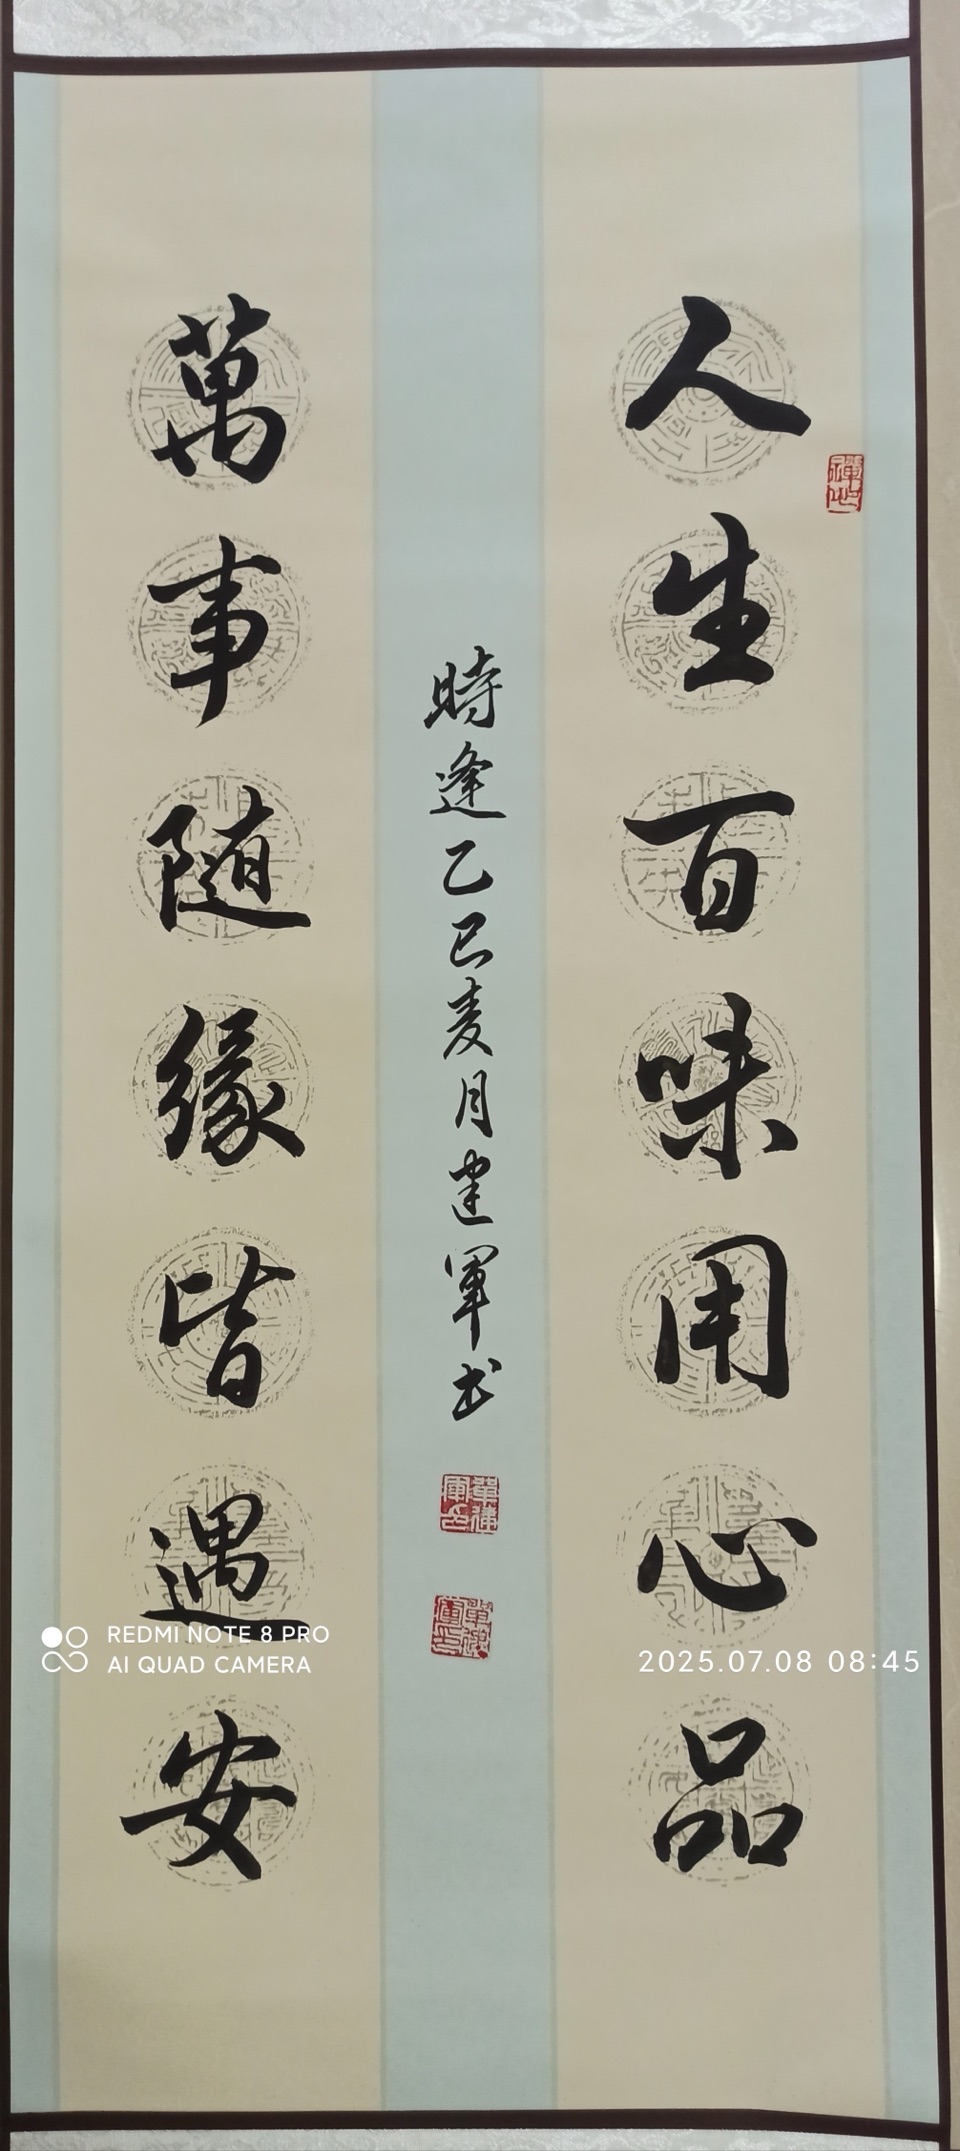 人生百味用心品
萬事随缘皆遇安
時逢乙巳麦月建軍书
禅心
REDMI NOTE 8 PRO
AI QUAD CAMERA
2025.07.08 08:45